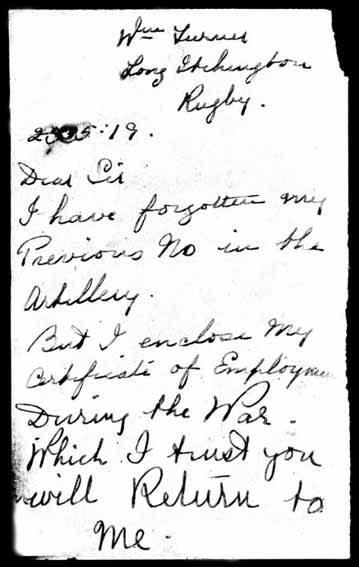 Wm Turner
Long Itchington
Rugby.
25:5:19.
Dear Sir
I have forgotten my
Previous No in the
Artillery.
But I enclose My
Certificate of Employme
During the War.
Which I trust you
will Return to
Me.